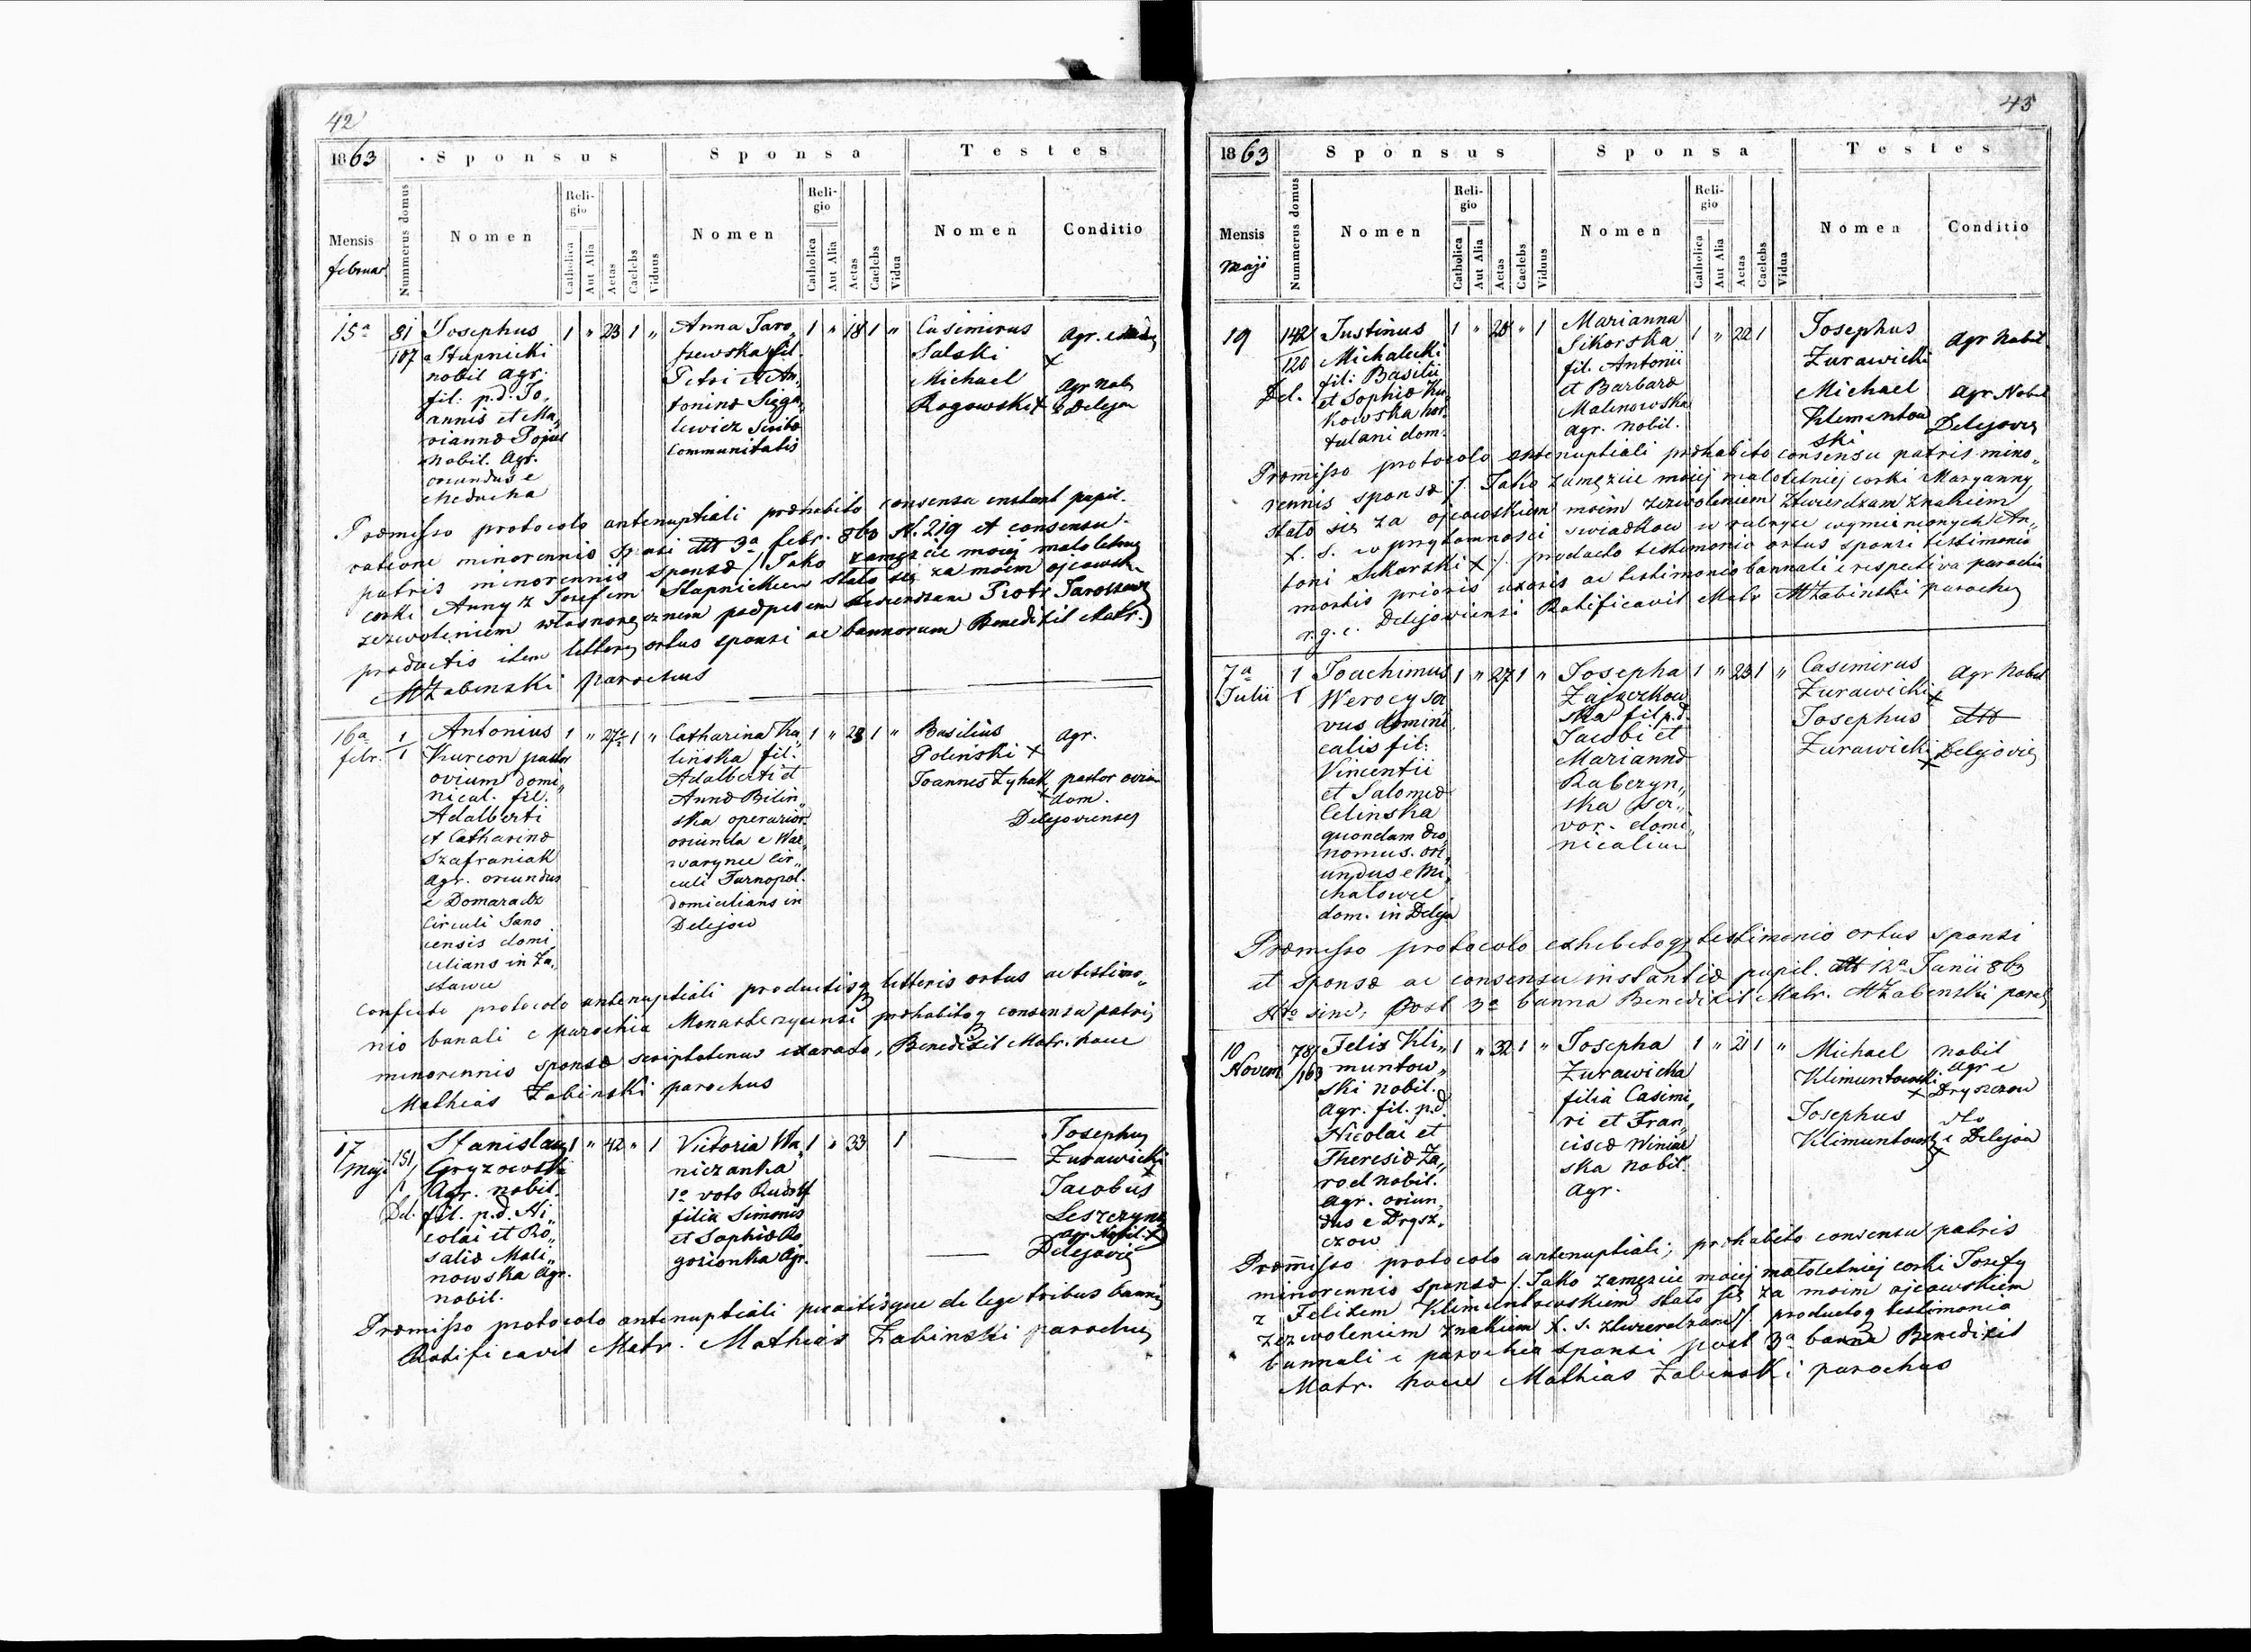 42
1863 Sponsus Sponsa Testes
Mensis
februar
Nummerus domus
Nomen
Religio
Catholica
Aut Alia
Aetas
Caelebs
Viduus
Nomen
Religio
Catholica
Aut Alia
Aetas
Caelebs
Vidua
Nomen
Conditio
15a
81
107
Josephus
Stupnicki
nobil agr.
fil. p.d. Jo„
annis et Ma„
rianna
nobil. Agr.
oriundus e
1 " 23 1 "
Anna Taro„
szewska fil.
Petri et An„
tonina
lewicz
communitatis
1 " 18 1 "
Casimirus
Salski
x
Michael
Rogowski x
Agr.
Agr nob
Praemisso protocolo antenuptiali praehabito consensu pupil.
ratione minorennis sponsi dtt 3a febr. 863 N. 219 et consensu
patris minorennis sponsa / Jako zamęzcie moiej maloletniej
corki Anny z Jozefem Stupnickiem stało się za moim ojcowskim
zezwoleniem własnoręcznem podpisem Piotr
productis item ortus sponsi ac bannorum Benedixit Matr.
MŻabinski parochus
16a
febr.
1
1
Antonius
Kurcon pastor
ovium domi„
nical. fil.
Adalberti
et Catharina
Szafraniak
Agr. oriundus
e Domaradz
Circuli Sano
censis domi„
cilians in Za„
stawce
1 " 27½ 1 "
Catharina Ka
linska fil.
Adalberti et
Anna Bilin„
ska operarior.
oriunda e War„
warynce Cir„
culi Tarnopol.
domicilians in
Delejow
1 " 23 1 "
Basilius
Polinski x
Joannes Zyhak
x
agr.
pastor ovium
dom.
Delejovienses
Confecto protocolo antenuptiali productisq litteris ortus ac testimo„
nio banali e parochia Monasterzycensi praehabitoq consensu patris
minorennis sponsa scriptotenus exarato, Benedixit Matr. hocce
Mathias Żabinski parochus
17
Maji
151/
1
Del.
Stanislaus
Gryzowski
Agr. nobil.
fil. p.d. Ni„
colai et Ro„
salia Mali„
nowska Agr.
nobil.
1 " 42 " 1
Victoria Wa„
niczanka
1o voto Rudolf
filia Simonis
et Sophia Ro
gozionka Agr.
1 " 33 1
Josephus
Żurawicki
x
Jacobus
Agr Nobil. x
Delejovien
Praemisso protocolo antenuptiali peractisque de lege tribus bannis
Ratificavit Matr. Mathias Żabinski parochus
43
1863 Sponsus Sponsa Testes
Mensis
Maji
Nummerus domus
Nomen
Religio
Catholica
Aut Alia
Aetas
Caelebs
Viduus
Nomen
Religio
Catholica
Aut Alia
Aetas
Caelebs
Vidua
Nomen
Conditio
19
142
120
Del.
Justinus
Michalecki
fil: Basilii
et Sophia Ku„
kowska hor„
tulani dom.
1 " 28 " 1
Marianna
Sikorska
fil. Antonii
et Barbara
Malinowska
agr. nobil.
1 " 22 1
Josephus
Żurawicki
Michael
Klimuntow
ski
Agr Nobil
Agr Nobil
Delejovien
Praemisso protocolo antenuptiali praehabito consensu patris mino„
rennis sponsa /. Jako zamęzcie moiej maloletniej corki Maryanny
stało się za ojcowskiem moim zezwoleniem ztwierdzam znakiem
x. s. w przytomnosci swiadkow w rubryce wymienionych An„
toni Sikorski x / producto testimonio ortus sponsi testimonio
mortis prioris uxoris ac testimonio bannali e respectiva parochia
r.g.c. Delejoviensi Ratificavit Matr MŻabinski parochus
7a
Julii
1
1
Joachimus
vus domini
calis fil.
Vincentii
et Salomea
Celinska
quondam oeco
nomus. ori„
undus e Mi„
chalowce
dom. in Deleja
1 " 27 1 "
Josepha
Zajączkow
ska fil p.d.
Jacobi et
Marianna
Rabczyn„
ska ser„
vor. domi„
nicalium
1 " 23 1 "
Casimirus
Żurawicki
x
Josephus
Żurawicki
x
Agr Nobil
dtto
Delejovien
Praemisso protocolo exhibitoq testimonio ortus sponsi
et sponsa ac consensu instantia pupil. dtt 12a Junii 863
Nro sine, Post 3a banna Benedixit Matr. MŻabinski paroch
10
Novem
78/
163
Felix Kli„
muntow„
ski nobil.
Agr. fil. p.d.
Nicolai et
Theresia Za„
rod nobil.
Agr. oriun„
dus e Drysz„
czow
1 " 32 1 "
Josepha
Żurawicka
filia Casimi„
ri et Fran„
cisca Winiar
ska nobil.
Agr.
1 " 21 1 "
Michael
Klimuntowski
x
Josephus
Klimuntowski
x
nobil
agr e
Dryszczow
dto
e Delejow
Praemisso protocolo antenuptiali; praehabito consensu patris
minorennis sponsa /. Jako zamęzcie moiej maloletniej corki Jozefy
z Felixem Klimuntowskiem stało się za moim ojcowskiem
zezwoleniem znakiem x. s. ztwierdzam / productoq testimonio
bannali e parochia sponsi post 3a banna Benedixit
Matr. hocce Mathias Żabinski parochus